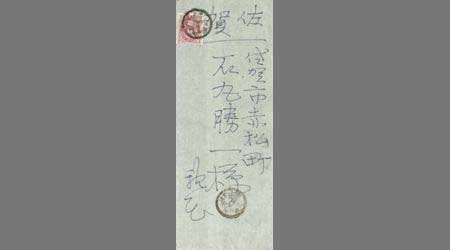 佐賀
佐賀市赤松町
石丸勝一様
親展